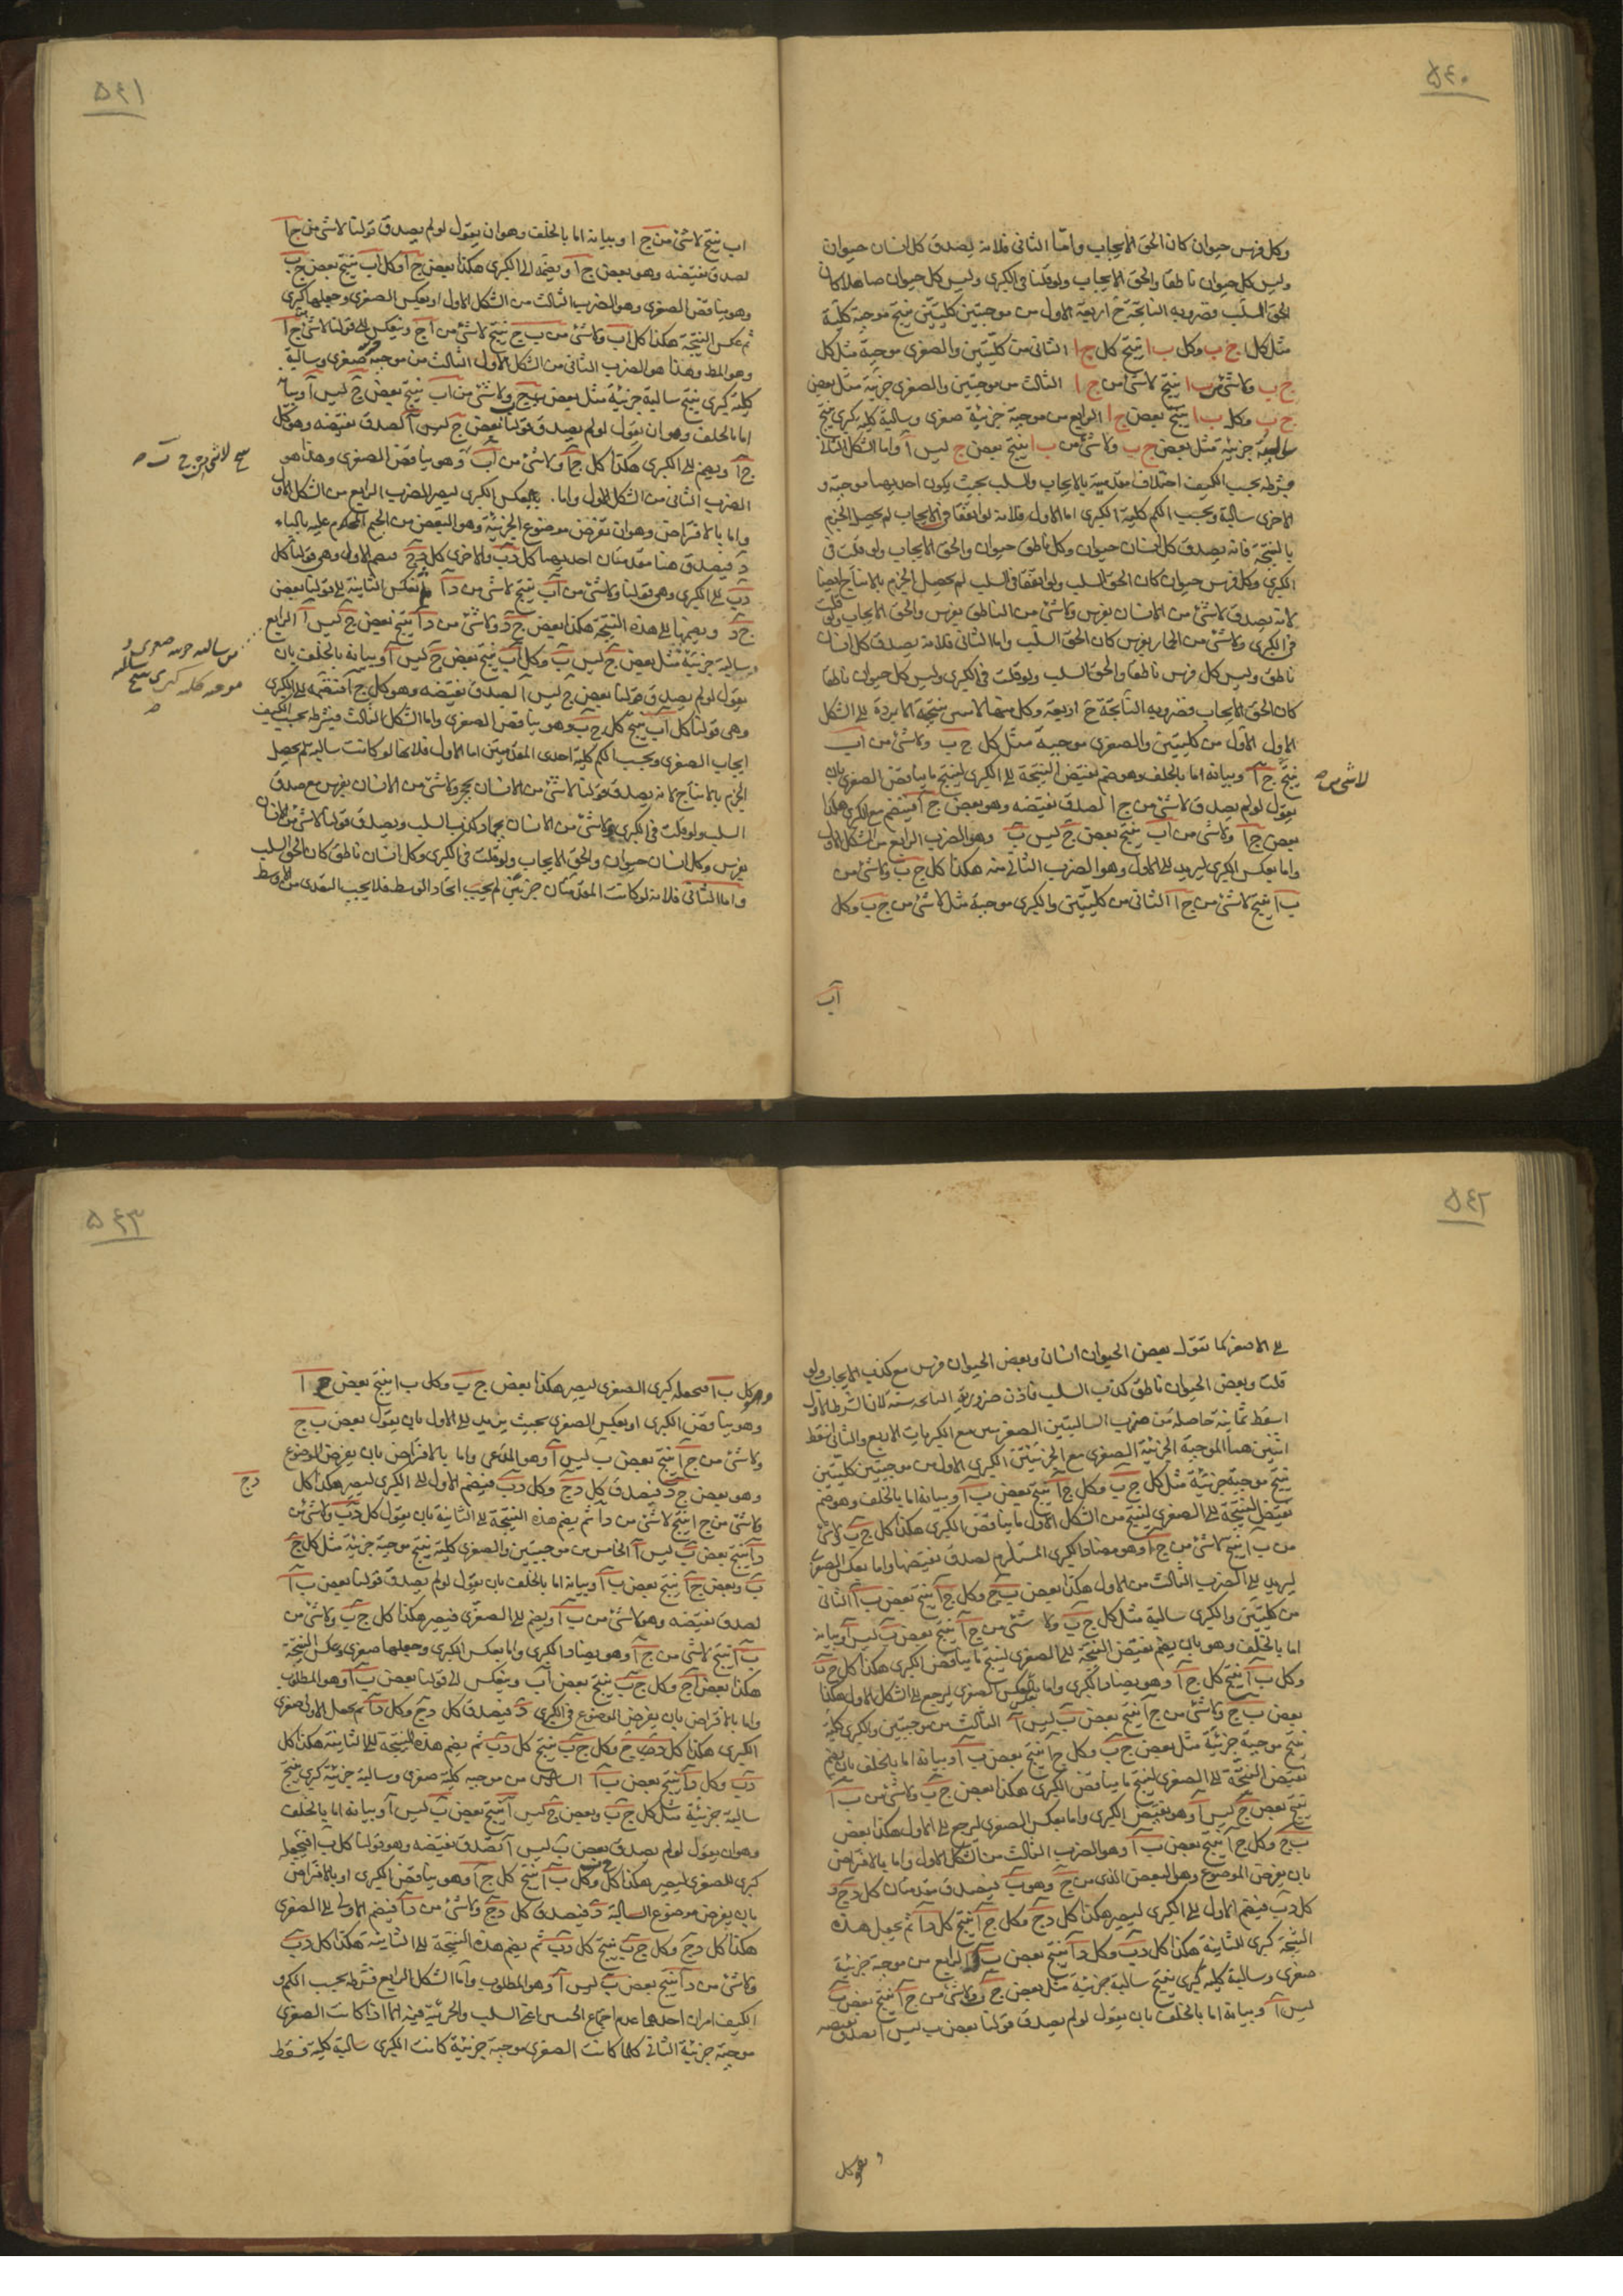 ٥٤٠
وكل فرس حيوان كان الحق الايجاب واما الثانى فلانه يصدق كل انسان حيوان
وليس كل حيوان ناطقا والحق الايجاب ولو قلنا فى الكبرى وليس كل حيوان صاهلا كان
الحق السلب وضروبه الناتجة ح اربعة الاول من موجبتين كليتين ينتج موجبة كلية
مثل كل ج ب وكل ب ا ينتج كل ج ا الثانى من كليتين والصغرى موجبة مثل كل
ج ب ولا شئ من ب ا ينتج لا شئ من ج ا الثالث من موجبتين والصغرى جزئية مثل بعض
ج ب وكل ب ا ينتج بعض ج ا الرابع من موجبة جزئية صغرى وسالبة كلية كبرى ينتج
سالبة جزئية مثل بعض ج ب ولا شئ من ب ا ينتج بعض ج ليس ا واما الشكل الثانى
فشرطه بحسب الكيف اختلاف مقدمتيه بالايجاب والسلب بحيث يكون احديهما موجبة و
الاخرى سالبة وبحسب الكم كلية الكبرى اما الاول فلانه لو اتفقا فى الايجاب لم يحصل الجزم
بالنتيجة فانه يصدق كل انسان حيوان وكل ناطق حيوان والحق الايجاب ولو قلت فى
الكبرى وكل فرس حيوان كان الحق السلب ولو اتفقا فى السلب لم يحصل الجزم بالانتاج ايضا
لانه يصدق لا شئ من الانسان بفرس ولا شئ من الناطق بفرس والحق الايجاب ولو قلت
فى الكبرى ولا شئ من الحمار بفرس كان الحق السلب واما الثانى فلانه يصدق كل انسان
ناطق وليس كل فرس ناطقا والحق السلب ولو قلت فى الكبرى وليس كل حيوان ناطقا
كان الحق الايجاب فضروبه الناتجة ح اربعة وكل منها لا يبين نتيجة الا برده الى الشكل
الاول الاول من كليتين والصغرى موجبة مثل كل ج ب ولا شئ من ا ب
ينتج ج ا وبيانه اما بالخلف وهو ضم نقيض النتيجة الى الكبرى لينتج ما يناقض الصغرى بان
لا شئ من صح
يقول لو لم يصدق لا شئ من ج ا لصدق نقيضه وهو بعض ج ا فينضم مع الكبرى هكذا
بعض ج ا ولا شئ من ا ب ينتج بعض ج ليس ب وهو الضرب الرابع من الشكل الاول
واما بعكس الكبرى ليرتد الى الاول وهو الضرب الثانى منه هكذا كل ج ب ولا شئ من
ب ا ينتج لا شئ من ج ا الثانى من كليتين والكبرى موجبة مثل لا شئ من ج ب وكل
اب
٥٤١
اب ينتج لا شئ من ج ا وبيانه اما بالخلف وهو ان يقول لو لم يصدق قولنا لا شئ من ج ا
لصدق نقيضه وهو بعض ج ا ويضمه الى الكبرى هكذا بعض ج ا وكل ا ب ينتج بعض ج ب
وهو يناقض الصغرى وهو الضرب الثالث من الشكل الاول او بعكس الصغرى وجعلها كبرى
ثم عكس النتيجة هكذا كل ا ب ولا شئ من ب ج ينتج لا شئ من ا ج وينعكس الى قولنا لا شئ من ج ا
وهو المط وهذا هو الضرب الثانى من الشكل الاول الثالث من موجبة صغرى وسالبة
كلية كبرى ينتج سالبة جزئية مثل بعض ج ب ولا شئ من ا ب ينتج بعض ج ليس ا وبيانه
اما بالخلف وهو ان يقول لو لم يصدق قولنا بعض ج ليس ا لصدق نقيضه وهو كل
ج ا ويضم الى الكبرى هكذا كل ج ا ولا شئ من ا ب وهو يناقض الصغرى وهذا هو
ينتج لا شئ من ج ب صح
الضرب الثانى من الشكل الاول واما بعكس الكبرى ليصير الضرب الرابع من الشكل الاول
واما بالافتراض وهو ان نفرض موضوع الجزئية وهو البعض من الجيم المحكوم عليه بالباء
د فيصدق هنا مقدمتان احديهما كل د ب والاخرى كل د ج فيضم الاول وهى قولنا كل
د ب الى الكبرى وهى قولنا ولا شئ من ا ب ينتج لا شئ من د ا ثم نعكس الثانية الى قولنا بعض
ج د ويضمها الى هذه النتيجة هكذا بعض ج د ولا شئ من د ا ينتج بعض ج ليس ا الرابع
من سالبة جزئية صغرى و موجبة كلية كبرى ينتج سالبة صح
سالبة جزئية مثل بعض ج ليس ب وكل ا ب ينتج بعض ج ليس ا وبيانه بالخلف بان
يقول لو لم يصدق قولنا بعض ج ليس ا لصدق نقيضه وهو كل ج ا فنضمه الى الكبرى
وهى قولنا كل ا ب ينتج كل ج ب وهو يناقض الصغرى واما الشكل الثالث فشرطه بحسب الكيف
ايجاب الصغرى وبحسب الكم كلية احدى المقدمتين اما الاول فلانها لو كانت سالبة لم يحصل
الجزم بالانتاج لانه يصدق قولنا لا شئ من الانسان بحجر ولا شئ من الانسان بفرس مع صدق
السلب ولو قلت فى الكبرى ولا شئ من الانسان بجماد كذب السلب ويصدق قولنا لا شئ من الانسان
بفرس وكل انسان حيوان والحق الايجاب ولو قلت فى الكبرى وكل انسان ناطق كان الحق السلب
واما الثانى فلانه لو كانت المقدمتان جزئيتين لم يجب اتحاد الوسط فلا يجب التعدى من الاوسط
٥٤٢
الى الاصغر كما تقول بعض الحيوان انسان وبعض الحيوان فرس مع كذب الايجاب ولو
قلت وبعض الحيوان ناطق كذب السلب فاذن ضروبه الناتجة ستة لان الشرط الاول
اسقط ثمانية حاصلة من ضرب السالبتين الصغريين مع الكبريات الاربع والثانى اسقط
اثنين هما الموجبة الجزئية الصغرى مع الجزئيتين الكبرى الاول من موجبتين كليتين
ينتج موجبة جزئية مثل كل ج ب وكل ج ا ينتج بعض ب ا وبيانه اما بالخلف وهو ضم
نقيض النتيجة الى الصغرى لينتج من الشكل الاول ما يناقض الكبرى هكذا كل ج ب ولا شئ
من ب ا ينتج لا شئ من ج ا وهو مضاد الكبرى المستلزم لصدق نقيضها واما بعكس الصغرى
ليرتد الى الضرب الثالث من الاول هكذا بعض ب ج وكل ج ا ينتج بعض ب ا الثانى
من كليتين والكبرى سالبة مثل كل ج ب ولا شئ من ج ا ينتج بعض ب ليس ا وبيانه
اما بالخلف وهو بان يضم نقيض النتيجة الى الصغرى لينتج ما يناقض الكبرى هكذا كل ج ب
وكل ب ا ينتج كل ج ا وهو يضاد الكبرى واما بعكس الصغرى ليرجع الى الشكل الاول هكذا
بعض ب ج ولا شئ من ج ا ينتج بعض ب ليس ا الثالث من موجبتين والكبرى كلية
ينتج موجبة جزئية مثل بعض ج ب وكل ج ا ينتج بعض ب ا وبيانه اما بالخلف بان يضم
نقيض النتيجة الى الصغرى لينتج ما يناقض الكبرى هكذا بعض ج ب ولا شئ من ب ا
ينتج بعض ج ليس ا وهو نقيض الكبرى واما بعكس الصغرى ليرجع الى الاول هكذا بعض
ب ج وكل ج ا ينتج بعض ب ا وهو الضرب الثالث من الشكل الاول واما بالافتراض
بان يفرض الموضوع وهو البعض الذى من ج وهو ب ليصدق مقدمتان كل د ج و
كل د ب فيضم الاول الى الكبرى ليصير هكذا كل د ج وكل ج ا ينتج كل د ا ثم يجعل هذه
النتيجة كبرى للثانية هكذا كل د ب وكل د ا ينتج بعض ب ا الرابع من موجبة جزئية
صغرى وسالبة كلية كبرى ينتج سالبة جزئية مثل بعض ج ب ولا شئ من ج ا ينتج بعض ب
ليس ا وبيانه اما بالخلف بان يقول لو لم يصدق قولنا بعض ب ليس ا لصدق نقيضه
وهو كل
٥٤٣
وهو كل ب ا فنجعله كبرى الصغرى ليصير هكذا بعض ج ب وكل ب ا ينتج بعض ج ا
وهو يناقض الكبرى او بعكس الصغرى بحيث يرتد الى الاول بان يقول بعض ب ج
ولا شئ من ج ا ينتج بعض ب ليس ا وهو المدعى واما بالافتراض بان يفرض الموضوع
وهو بعض ج د فيصدق كل د ج وكل د ب فيضم الاول الى الكبرى ليصير هكذا كل
د ج
ولا شئ من ج ا ينتج لا شئ من د ا ثم يضم هذه النتيجة الى الثانية بان يقول كل د ب ولا شئ من
د ا ينتج بعض ب ليس ا الخامس من موجبتين والصغرى كلية ينتج موجبة جزئية مثل كل ج
ب وبعض ج ا ينتج بعض ب ا وبيانه اما بالخلف بان يقول لو لم يصدق قولنا بعض ب ا
لصدق نقيضه وهو لا شئ من ب ا ويضم الى الصغرى فيصير هكذا كل ج ب ولا شئ من
ب ا ينتج لا شئ من ج ا وهو يضاد الكبرى واما بعكس الكبرى وجعلها صغرى وعكس النتيجة
هكذا بعض ا ج وكل ج ب ينتج بعض ا ب وينعكس الى قولنا بعض ب ا وهو المطلوب
واما بالافتراض بان يفرض الموضوع فى الكبرى د فيصدق كل د ج وكل د ا ثم يجعل الاول صغرى
الكبرى هكذا كل د ج وكل ج ب ينتج كل د ب ثم يضم هذه النتيجة الى الثانية هكذا كل
د ب وكل د ا ينتج بعض ب ا السادس من موجبه كلية صغرى وسالبة جزئية كبرى ينتج
سالبة جزئية مثل كل ج ب وبعض ج ليس ا ينتج بعض ب ليس ا وبيانه اما بالخلف
وهو ان يقول لو لم يصدق بعض ب ليس ا لصدق نقيضه وهو قولنا كل ب ا فيجعل
كبرى للصغرى ليصير هكذا كل ج ب وكل ب ا ينتج كل ج ا وهو يناقض الكبرى او بالافتراض
بان يفرض موضوع السالبة د فيصدق كل د ج ولا شئ من د ا فيضم الاولى الى الصغرى
هكذا كل د ج وكل ج ب ينتج كل د ب ثم يضم هذه النتيجة الى الثانية هكذا كل د ب
ولا شئ من د ا ينتج بعض ب ليس ا وهو المطلوب واما الشكل الرابع فشرطه بحسب الكم و
الكيف امران احدهما عدم اجتماع الخستين اعنى السلب والجزئية فيه الا اذا كانت الصغرى
موجبة جزئية الثانى كلما كانت الصغرى موجبة جزئية كانت الكبرى سالبة كلية فقط